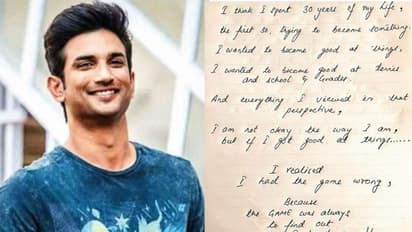 I think I spent 30 years of my life,
the first 30, trying to become something.
I wanted to become good at things.
I wanted to become good at tennis
and school & Grades.
And everything I viewed in that
perspective,
I am not okay the way I am,
but if I got good at things......
I realised
I had the game wrong,
Because
the GAME was always
to find out